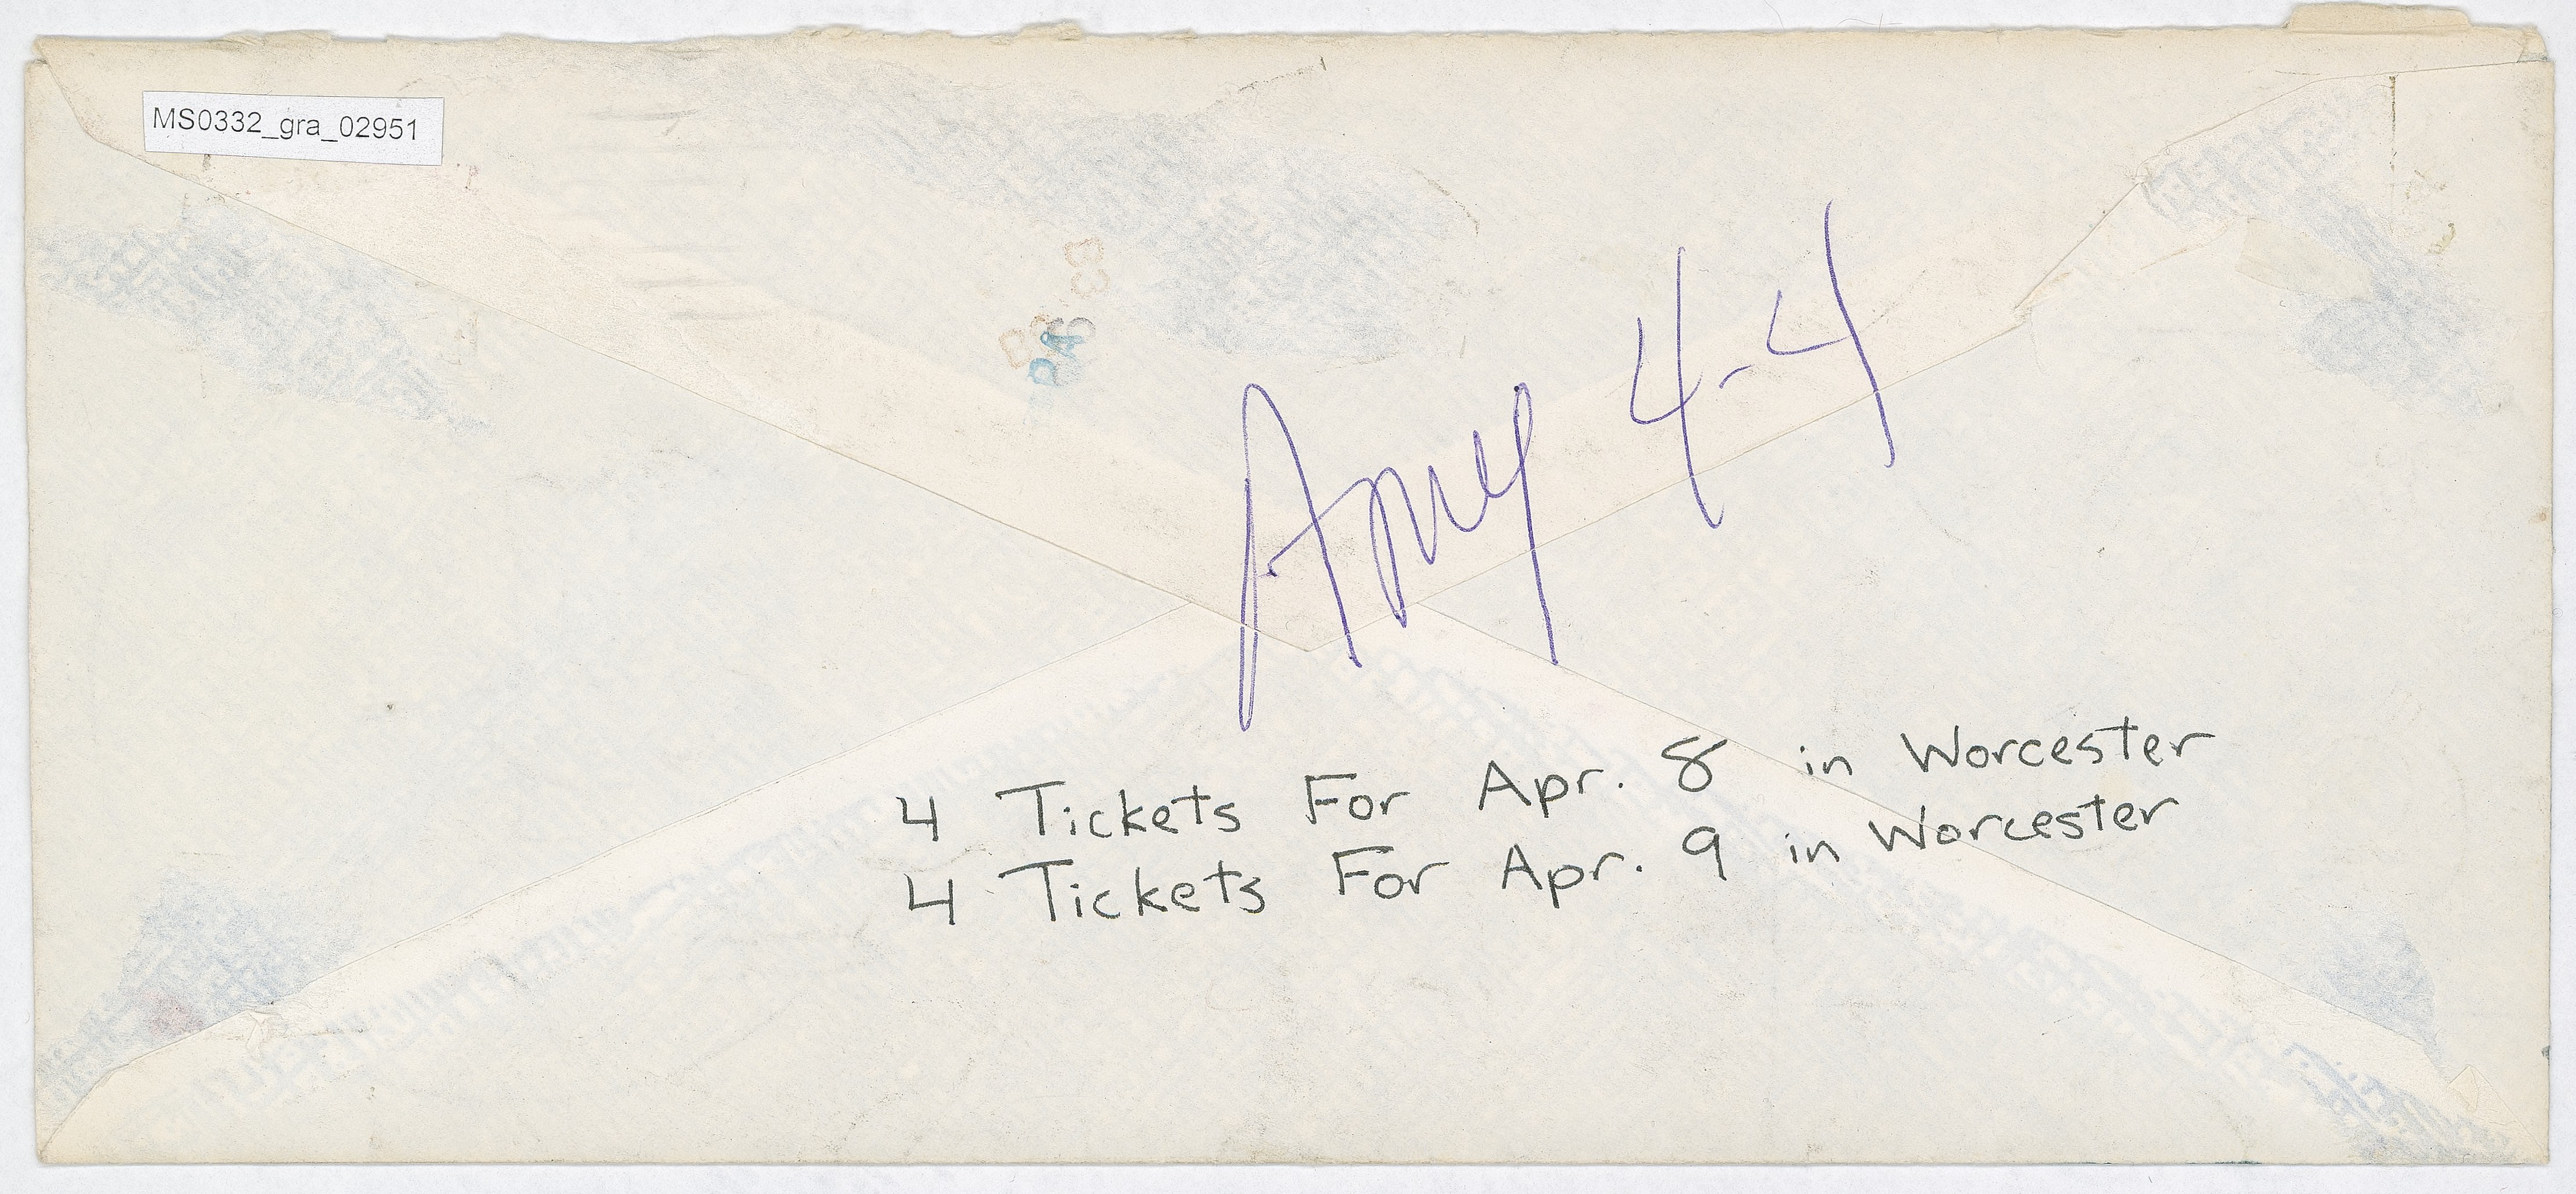 MS0332_gra_02951
Amy 4-4
4 Tickets For Apr. 8 in Worcester
4 Tickets For Apr. 9 in Worcester